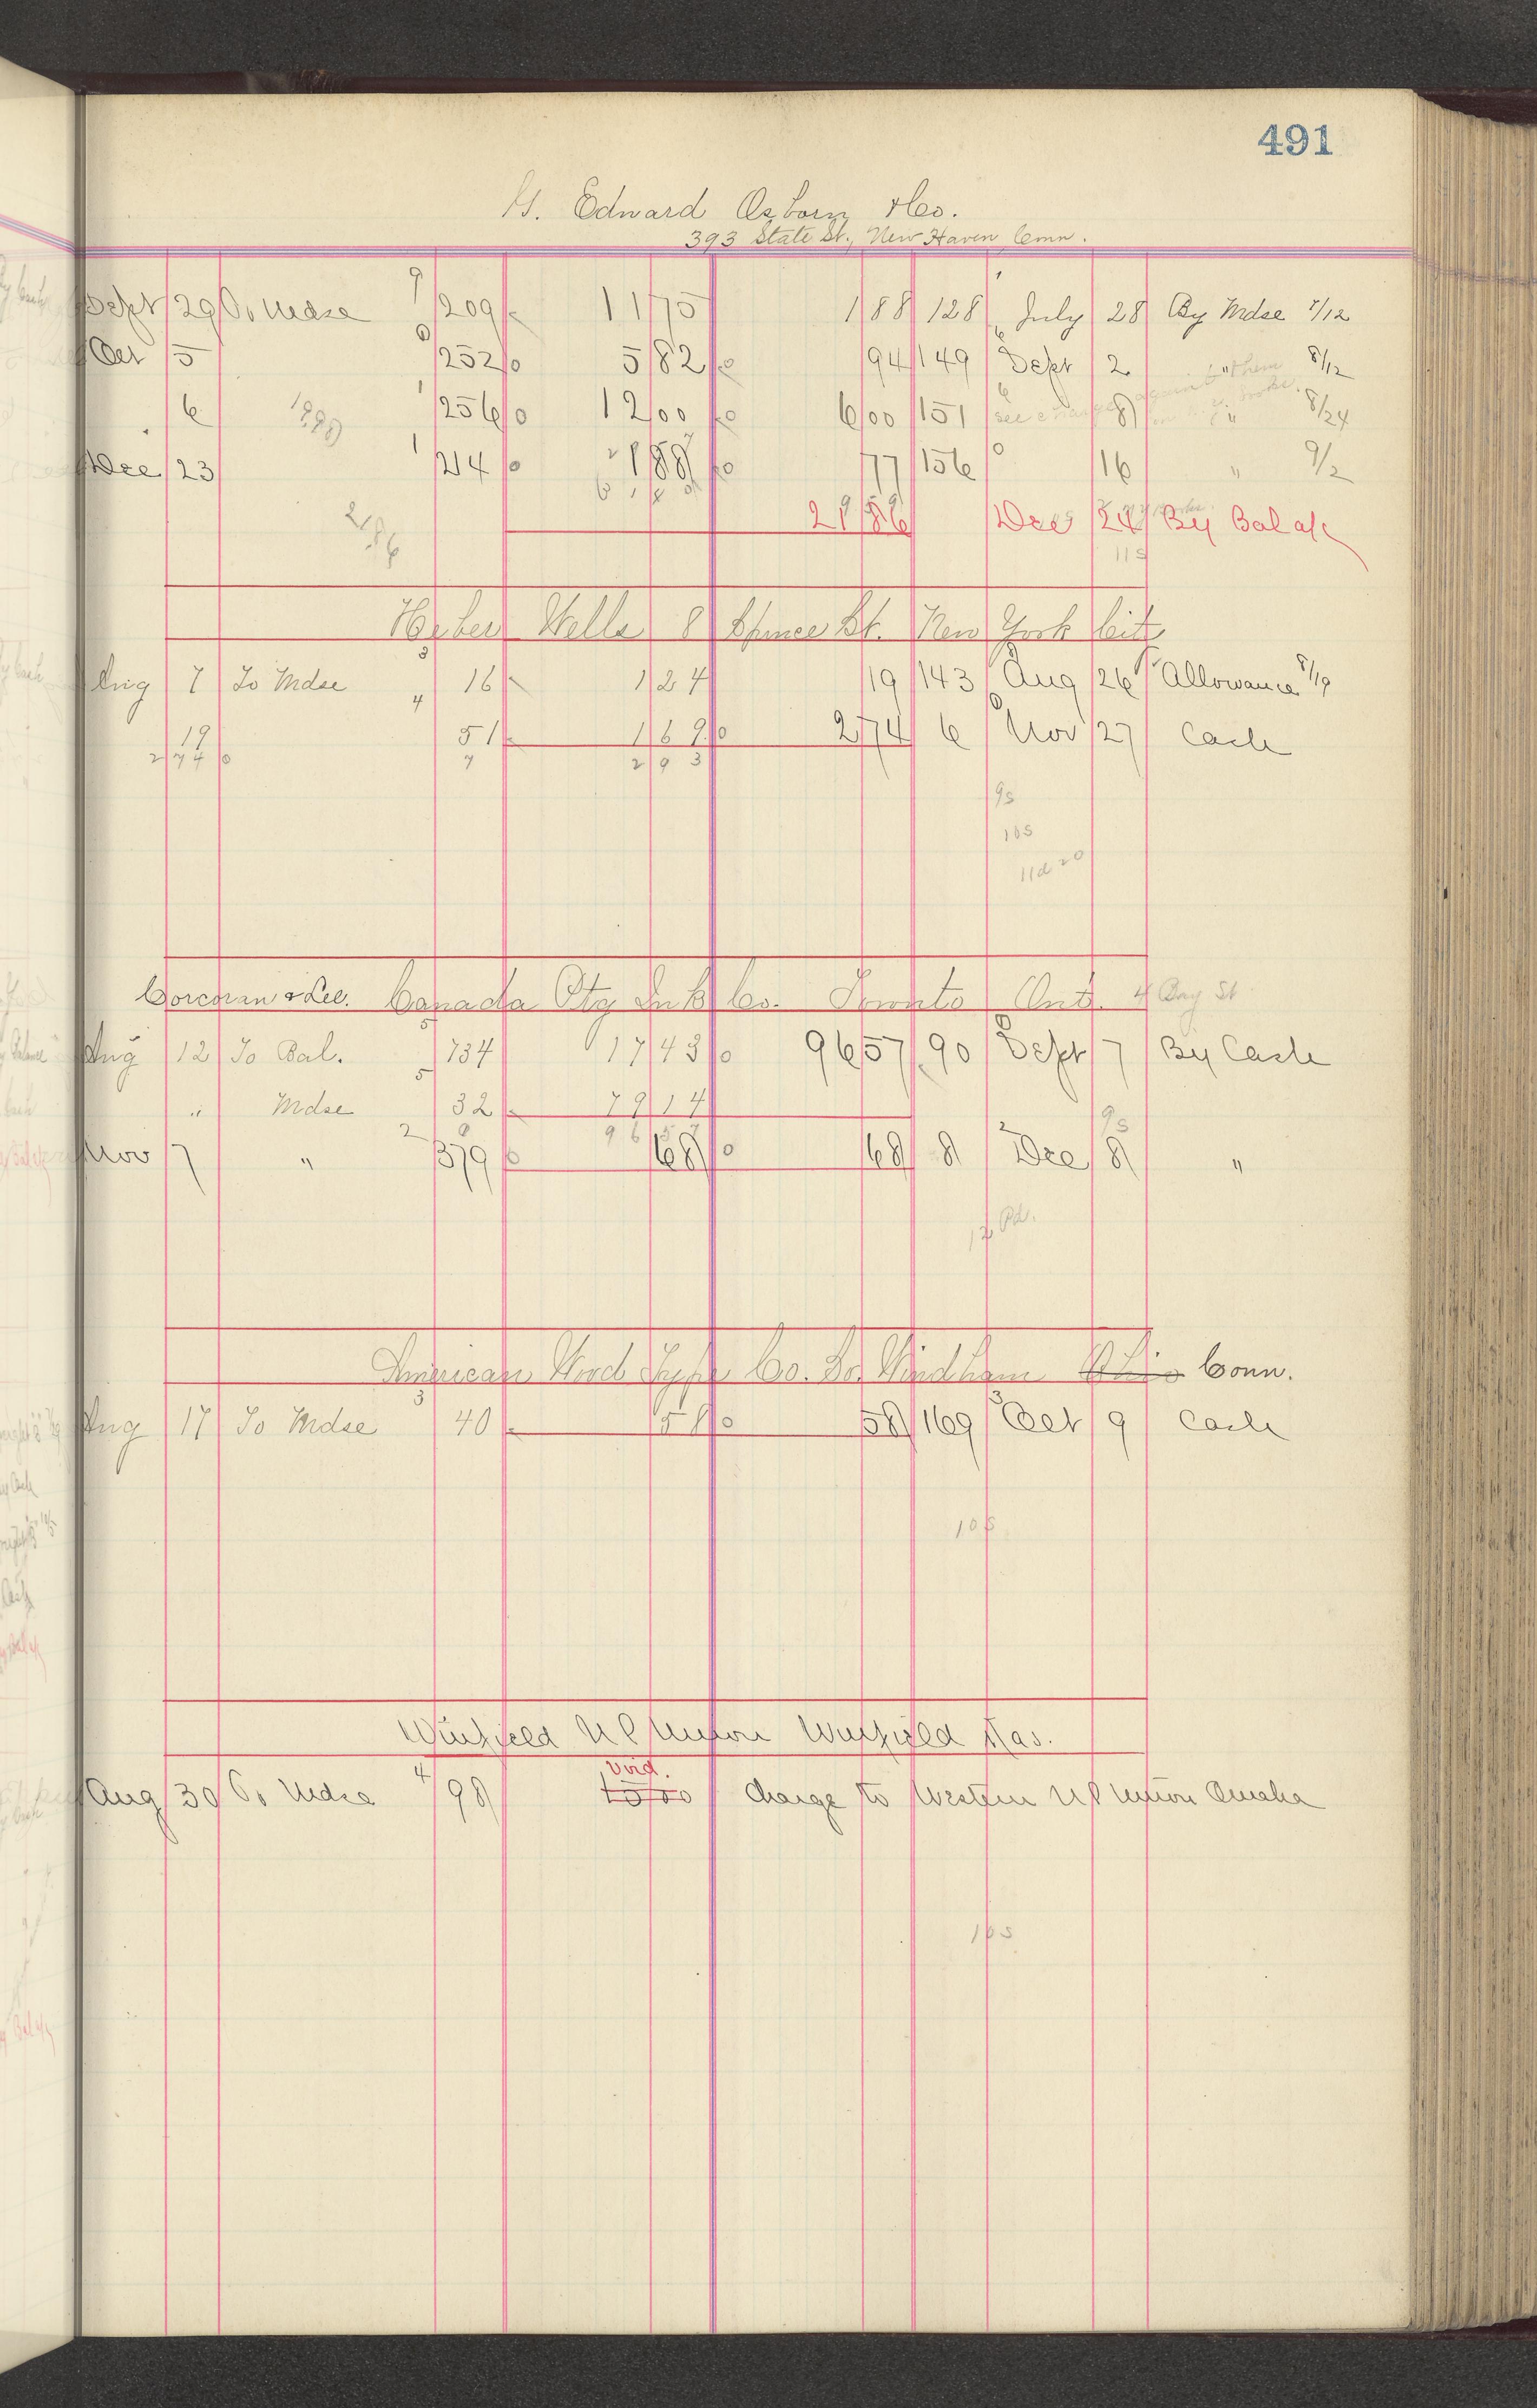 491
G. Edward Osborn & Co.
393 State St., New Haven Conn.
Sept 29 To Mdse 9 209 11 75 1 88 128 July 28 By Mdse 7/12
Oct 5 252 5 82 94 149 Sept 2 " 8/12
6 256 12 00 6 00 151 8 " 8/24
Dec 23 1 214 1 88 77 156 16 " 9/2
21 86 Dec 24 By Bal a/c
2186
11s
Heber Wells 8 Spruce St. New York City
Aug 7 To Mdse 3 16 1 24 19 143 Aug 26 Allowance 8/19
19 4 51 1 69 2 74 6 Nov 27 Cash
2 74 2 9 3
9s
10s
11d 20
Corcoran & Lee. Canada Ptg Ink Co. Toronto Ont. 4 Bay St
Aug 12 To Bal. 5 734 17 43 96 57 90 Sept 7 By Cash
" Mdse 5 32 79 14
96 57 9s
Nov 7 " 2 379 68 68 8 Dec 8 "
12 Pd.
American Wood Type Co. So. Windham Ohio Conn.
Aug 17 To Mdse 3 40 58 58 169 Oct 9 Cash
10s
Winfield N P Union Winfield Kas.
Void.
Aug 30 To Mdse 4 98 15 00 Charge to Western N P Union Omaha
10s